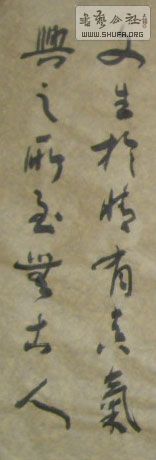 文生於情有真氣
興之所至無古人
書藝公社
WWW.SHUFA.ORG